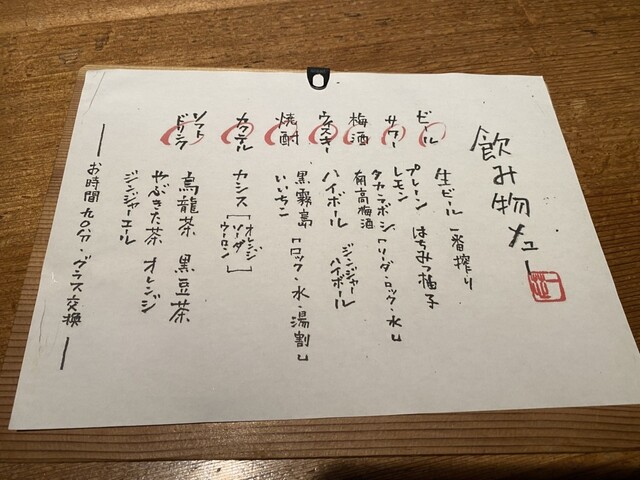 飲み物メニュー
ビール
生ビール 一番搾り
サワー
プレーン はちみつ柚子
レモン
梅酒
タカラボシ［ソーダ・ロック・水］
有高梅酒
ウィスキー
ハイボール ジンジャーハイボール
焼酎
黒霧島［ロック・水・湯割］
いいちこ
カクテル
カシス［オレンジ
ソーダ
ウーロン］
ソフトドリンク
烏龍茶 黒豆茶
やぶきた茶 オレンジ
ジンジャーエール
― お時間九〇分・グラス交換 ―